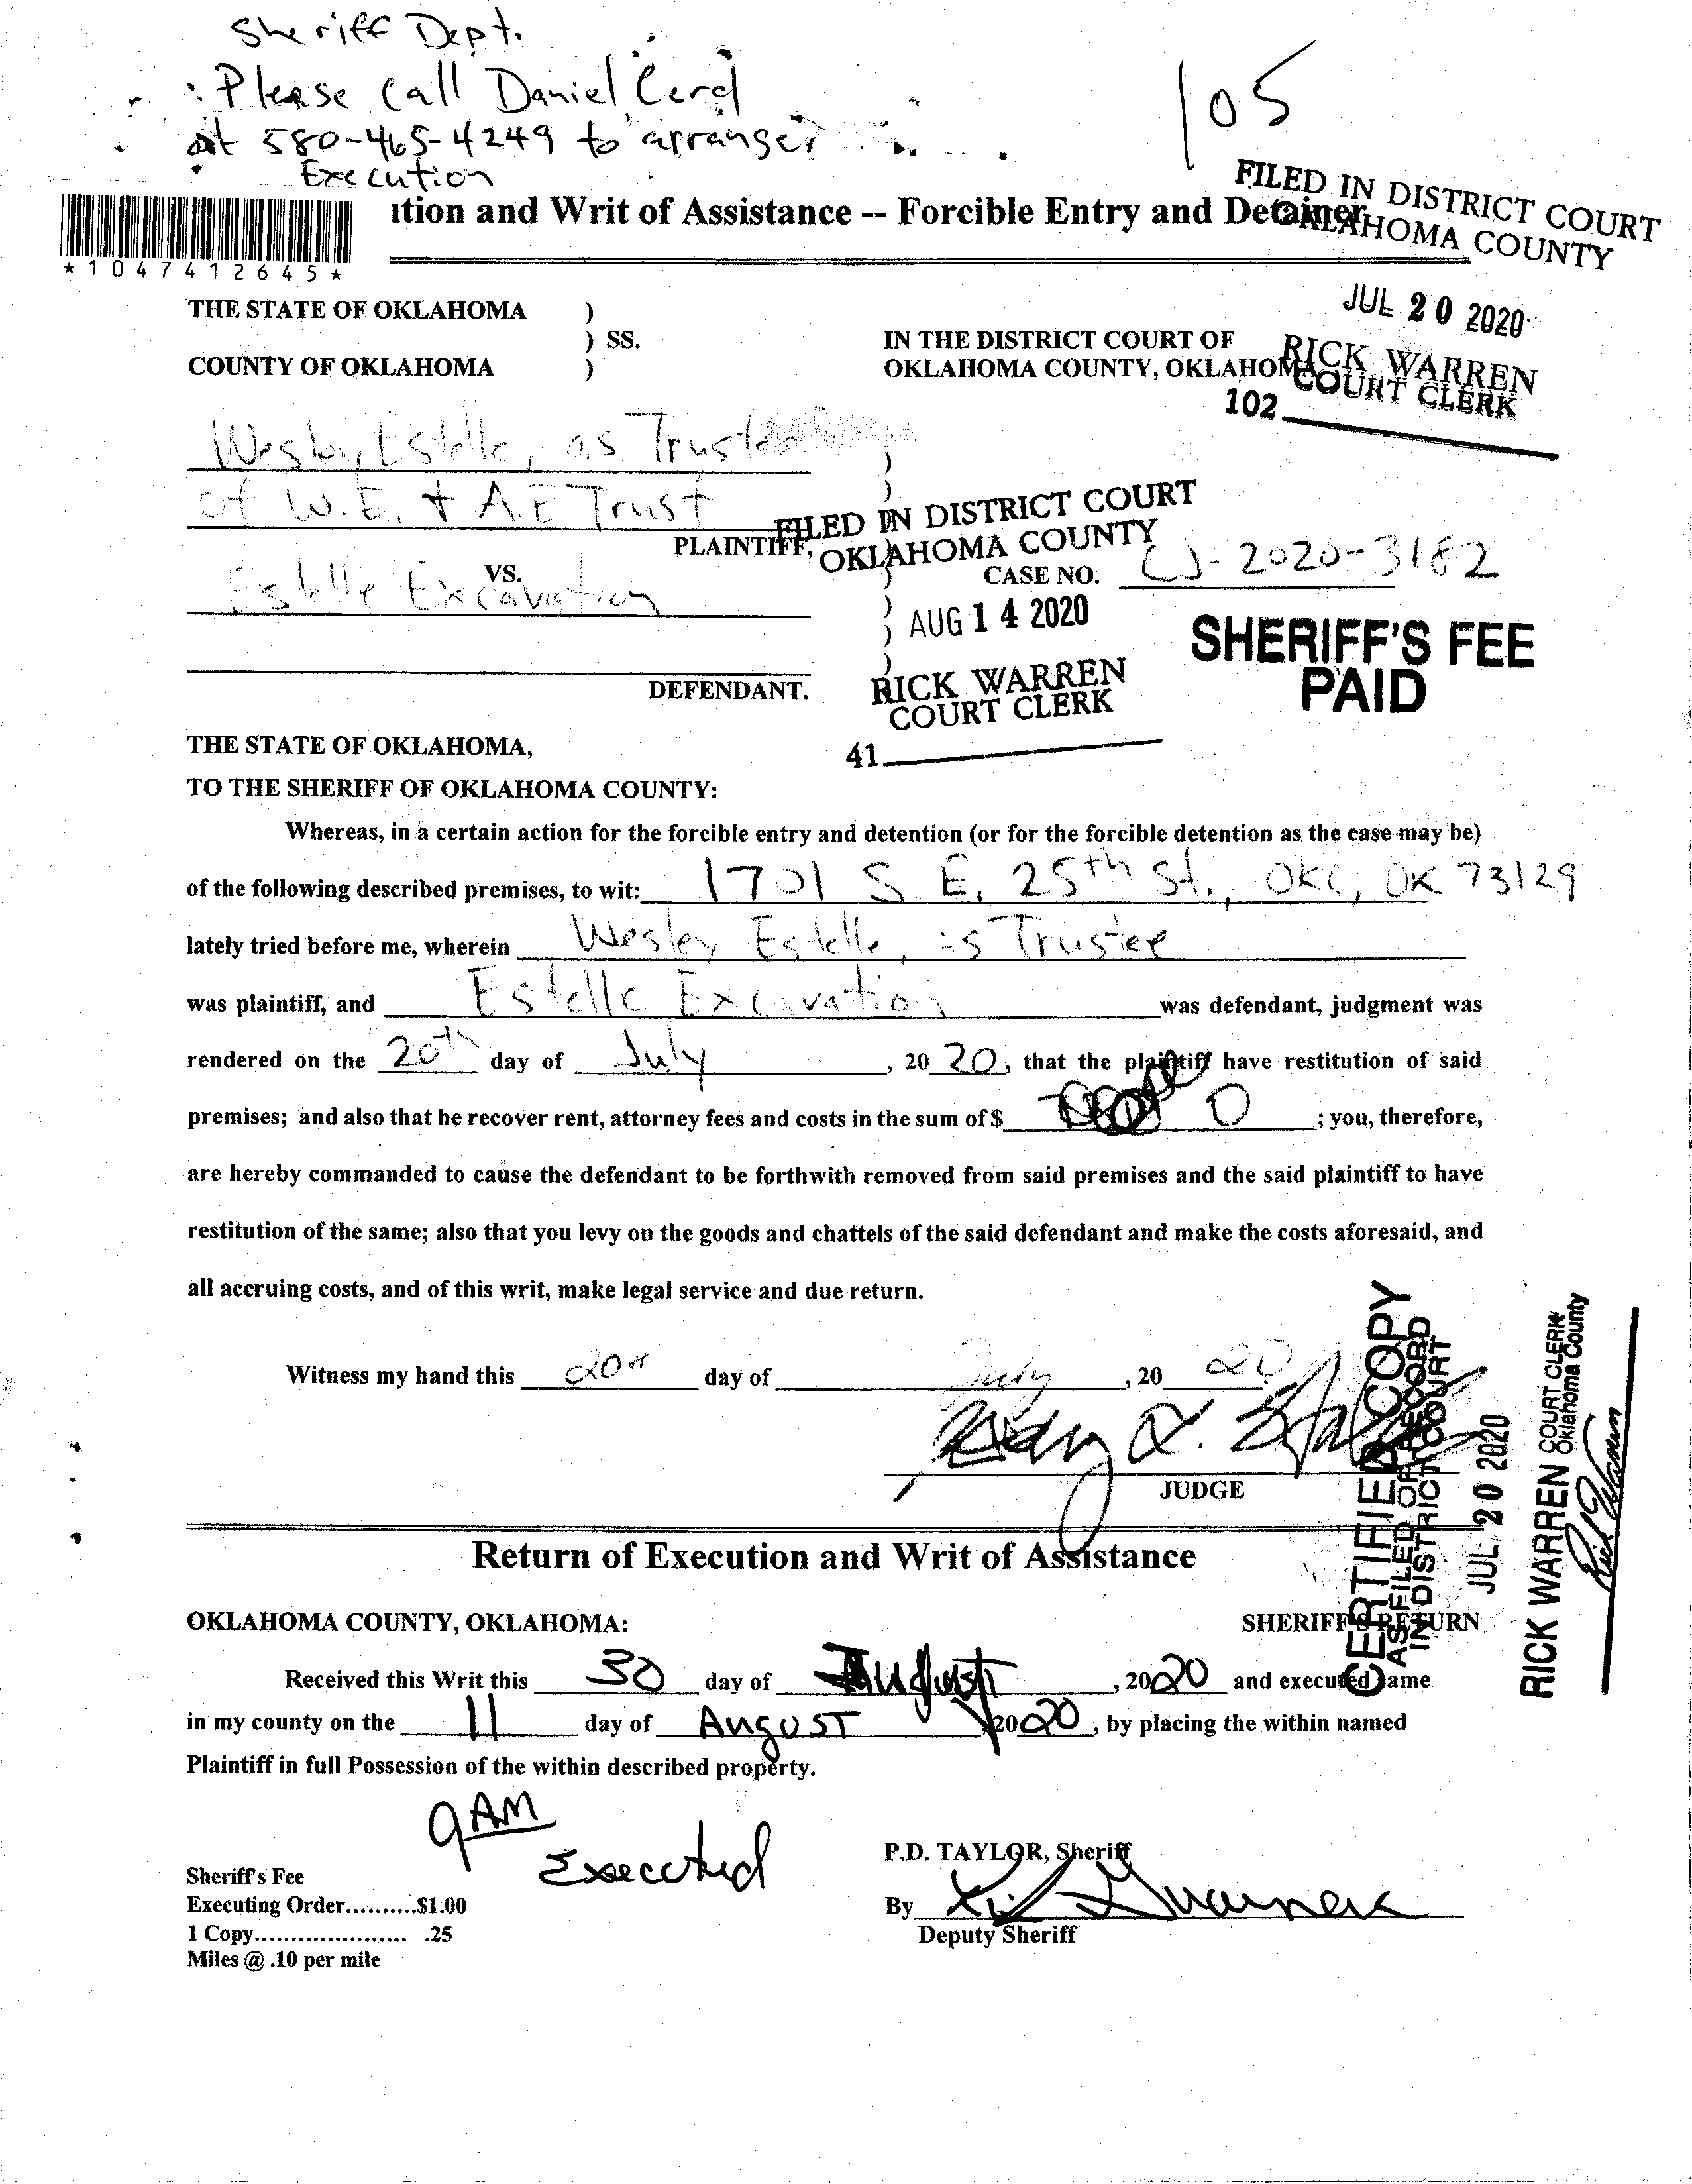 Sheriff Dept.
Please Call Daniel
at 580-465-4249 to arrange
Execution
105
ution and Writ of Assistance -- Forcible Entry and Detainer
FILED IN DISTRICT COURT
OKLAHOMA COUNTY
*1047412645*
JUL 20 2020
RICK WARREN
COURT CLERK
102
THE STATE OF OKLAHOMA )
) SS.
COUNTY OF OKLAHOMA )
IN THE DISTRICT COURT OF
OKLAHOMA COUNTY, OKLAHOMA
Wesley Estelle, as Trustee
of W.E. + A.E Trust
PLAINTIFF,
VS.
Estelle Excavation
DEFENDANT.
FILED IN DISTRICT COURT
OKLAHOMA COUNTY
CASE NO. CJ-2020-3182
AUG 14 2020
RICK WARREN
COURT CLERK
41
SHERIFF'S FEE
PAID
THE STATE OF OKLAHOMA,
TO THE SHERIFF OF OKLAHOMA COUNTY:
Whereas, in a certain action for the forcible entry and detention (or for the forcible detention as the case may be)
of the following described premises, to wit: 1701 S E. 25th St., OKC, OK 73129
lately tried before me, wherein Wesley Estelle, as Trustee
was plaintiff, and Estelle Excavation was defendant, judgment was
rendered on the 20th day of July, 20 20, that the plaintiff have restitution of said
premises; and also that he recover rent, attorney fees and costs in the sum of $ 0 ; you, therefore,
are hereby commanded to cause the defendant to be forthwith removed from said premises and the said plaintiff to have
restitution of the same; also that you levy on the goods and chattels of the said defendant and make the costs aforesaid, and
all accruing costs, and of this writ, make legal service and due return.
Witness my hand this 20th day of July, 20 20
JUDGE
CERTIFIED COPY
AS FILED OF RECORD
IN DISTRICT COURT
JUL 20 2020
RICK WARREN COURT CLERK
Oklahoma County
Rick Warren
Return of Execution and Writ of Assistance
OKLAHOMA COUNTY, OKLAHOMA: SHERIFF'S RETURN
Received this Writ this 30 day of August, 2020 and executed same
in my county on the 11 day of August, 2020, by placing the within named
Plaintiff in full Possession of the within described property.
9AM
Executed
Sheriff's Fee
Executing Order..........$1.00
1 Copy..................... .25
Miles @ .10 per mile
P.D. TAYLOR, Sheriff
By
Deputy Sheriff